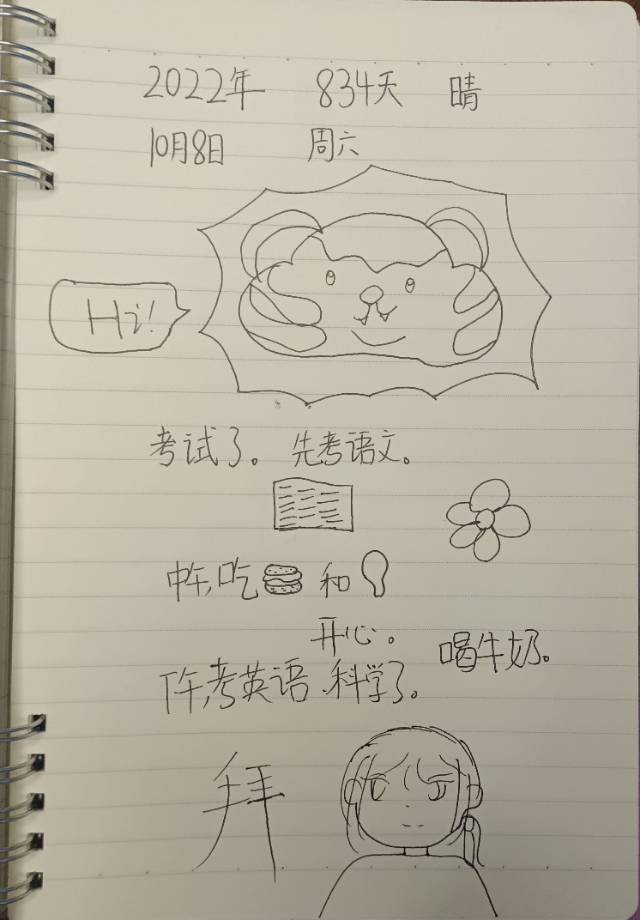 2022年 834天 晴
10月8日 周六
Hi!
考试了。先考语文。
中午,吃 和
开心。
喝牛奶。
下午,考英语、科学了。
拜